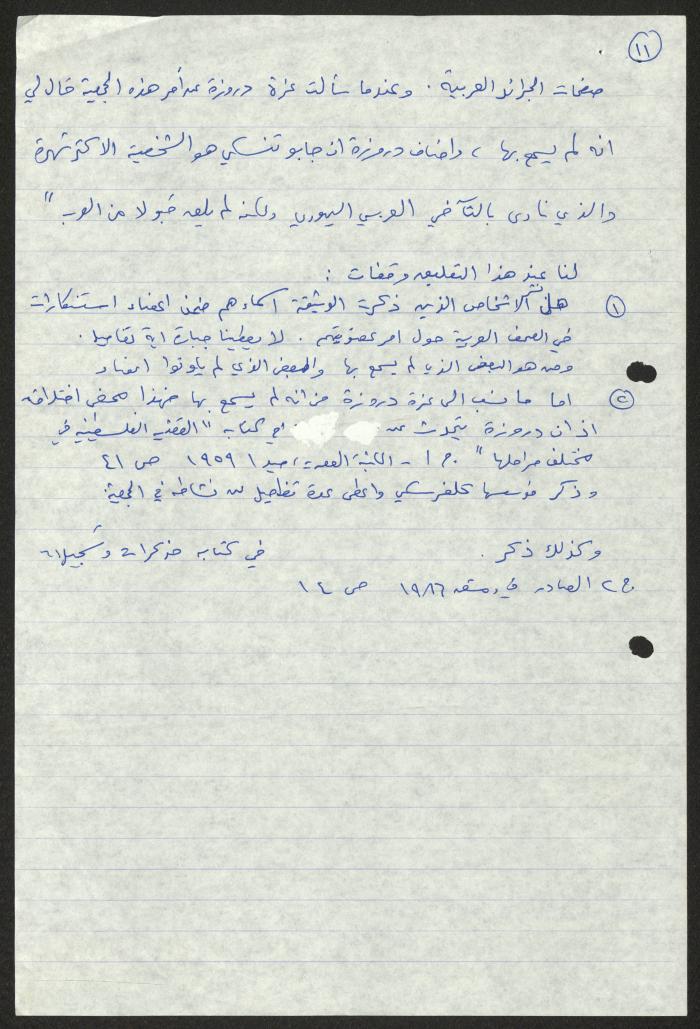 ١١
صفحات الجرائد العربية . وعندما سألت عزة دروزة عن أمر هذه الجمعية قال لي
انه لم يسمع بها ، واضاف دروزة ان جابو تنسكي هو الشخصية الاكثر شهرة
والذي نادى بالتآخي العربي اليهودي ولكنه لم يلق قبولا من العرب "
لنا عند هذا التعليق وقفات :
١ هل الاشخاص الذين ذكرت الوثيقة اسماءهم ضمن اعضاء استنكارات
في الصحف العربية حول امر عضويتهم . لا يعطينا جبارة اية تفاصيل .
ومن هو البعض الذي لم يسمع بها والبعض الذي لم يكونوا اعضاء
٢ اما ما نسب الى عزة دروزة من انه لم يسمع بها فهذا محض اختلاق
اذ ان دروزة يتحدث عن في كتابه " القضية الفلسطينية في
مختلف مراحلها " ج ١ - المكتبة العصرية ، صيدا ١٩٥٩ ص ٤١
و ذكر مؤسسها كلفرسكي واعطى عدة تفاصيل عن نشاطه في الجمعية
وكذلك ذكر . في كتابه مذكرات وتسجيلات
ج ٢ الصادر في دمشق ١٩٨٦ ص ١٤